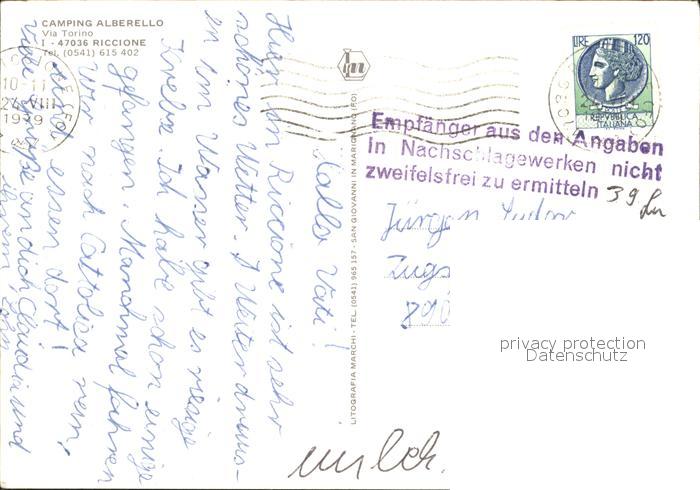 CAMPING ALBERELLO
Via Torino
I - 47036 RICCIONE
Tel. (0541) 615 402
10-11
27.VIII
1979
LIRE 120
REPVBBLICA
ITALIANA
Empfänger aus den Angaben
in Nachschlagewerken nicht
zweifelsfrei zu ermitteln 39
Jürgen
Zugs
890
privacy protection
Datenschutz
LITOGRAFIA MARCHI - TEL. (0541) 965 157 - SAN GIOVANNI IN MARIGNANO (FO)
Hallo Vati!
Hier in Riccione ist sehr
schönes Wetter. Weiter draus-
en im Wasser gibt es riesige
Krebse. Ich habe schon einige
gefangen. Manchmal fahren
wir nach Cattolica rein,
und essen dort!
Viele Grüße an dich Claudia und